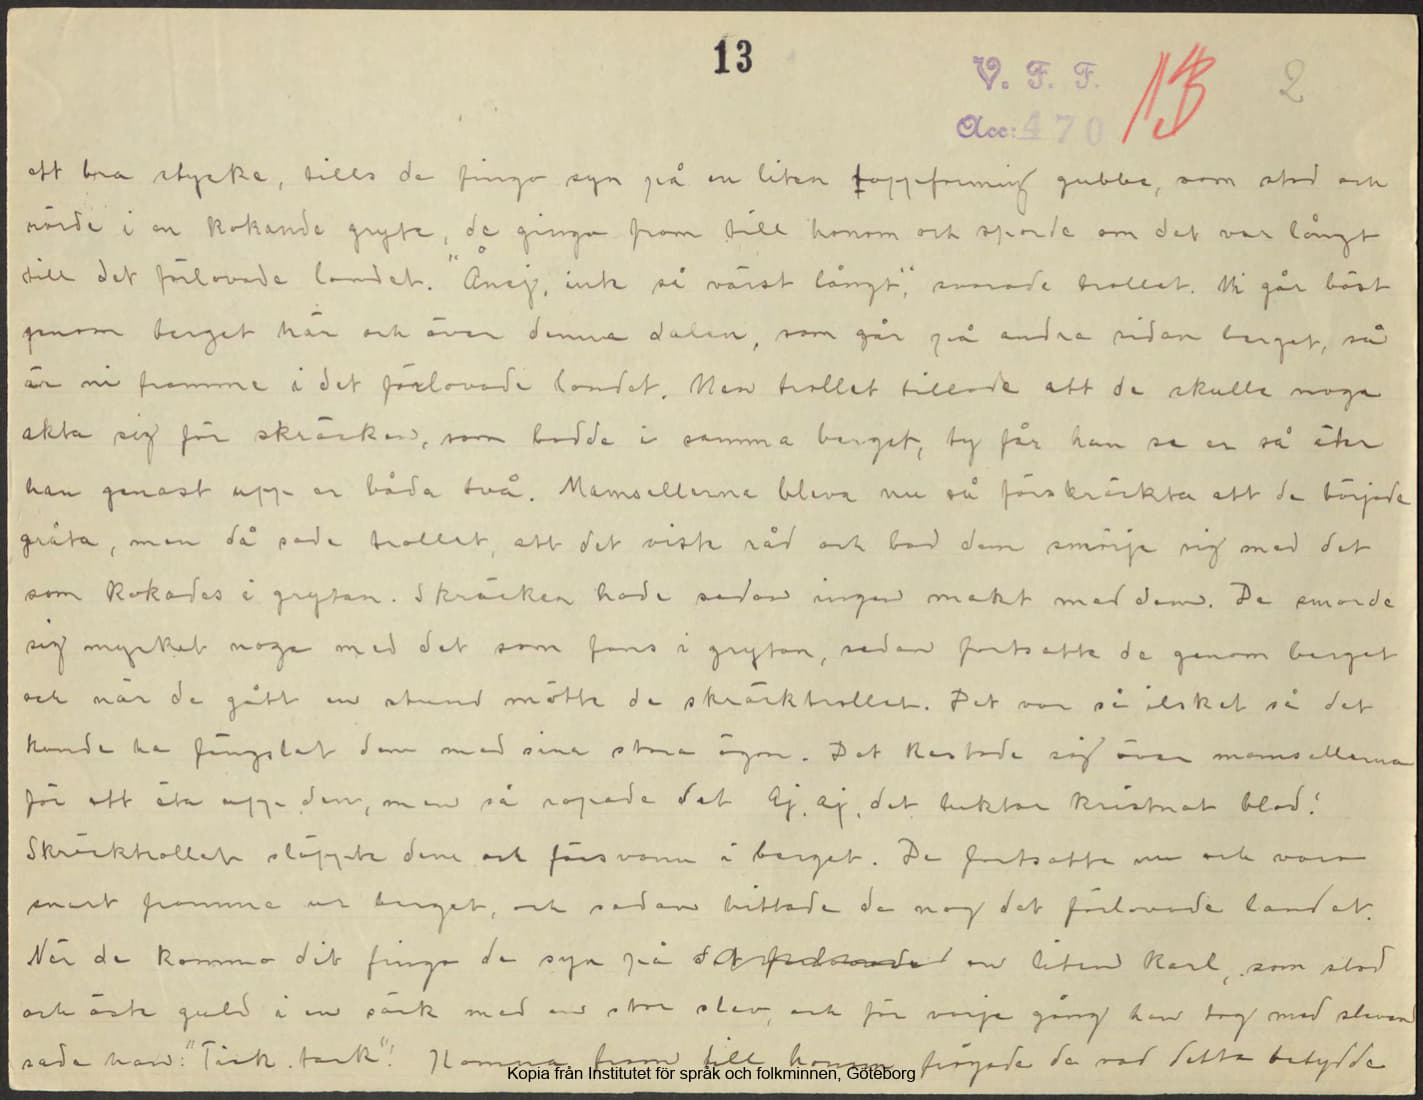 13
V. F. F.
Acc: 470
13
2
ett bra stycke, tills de fingo syn på en liten toppformig gubbe, som stod och
rörde i en kokande gryta, de gingo fram till honom och sporde om det var långt
till det förlovade landet. "Ånej, inte så värst långt", svarade trollet. Ni går bäst
genom berget här och över denna dalen, som går på andra sidan berget, så
är ni framme i det förlovade landet. Men trollet tillade att de skulle noga
akta sig för skräcken, som bodde i samma berget, ty får han se er så äter
han genast upp er båda två. Mamsellerna bleva nu så förskräckta att de började
gråta, men då sade trollet, att det viste råd och bad dem smörje sig med det
som kokades i grytan. Skräcken hade sedan ingen makt med dem. De smorde
sig mycket noga med det som fans i grytan, sedan fortsatte de genom berget
och när de gått en stund mötte de skräcktrollet. Det var så ilsket så det
kunde ha fängslat dem med sina stora ögon. Det kastade sig över mamsellerna
för att äta upp dem, men så ropade det Aj, aj, det luktar kristnat blod!
Skräcktrollet släppte dem och försvann i berget. De fortsatte nu och voro
snart framme ur berget, och sedan hittade de nog det förlovade landet.
När de kommo dit fingo de syn på en liten karl, som stod
och öste guld i en säck med en stor slev, och för varje gång han tog med sleven
sade han: "Tick tack"! Komna fram till honom frågade de vad detta betydde
Kopia från Institutet för språk och folkminnen, Göteborg